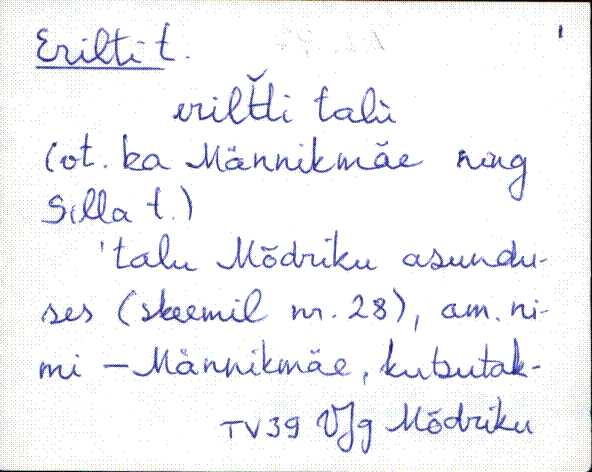 Erilti t.
1
eriltti talù
(ot. ka Männikmäe ning
Silla t.)
'talu Mõdriku asundu-
ses (skeemil nr. 28), am. ni-
mi – Männikmäe, kutsutak-
TV39 VJg Mõdriku